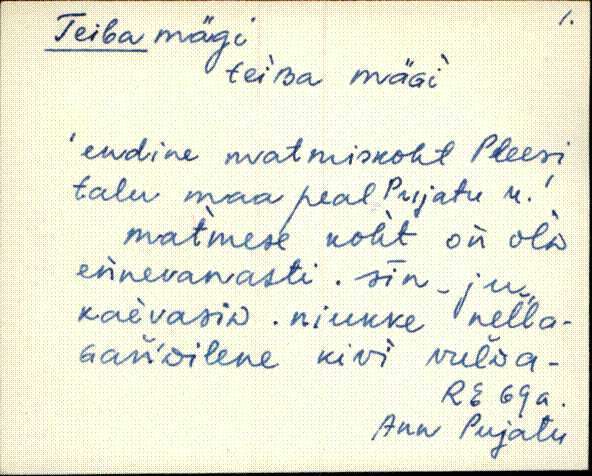 1.
Teiba mägi
teiʙa mäGi
'endine matmiskoht Pleesi
talu maa peal Pujatu k.'
matmese koht on old
ennevanasti. sīn ju
kaevasid. niukke nella-
kivi
RE 69a.
Ann Pujatu